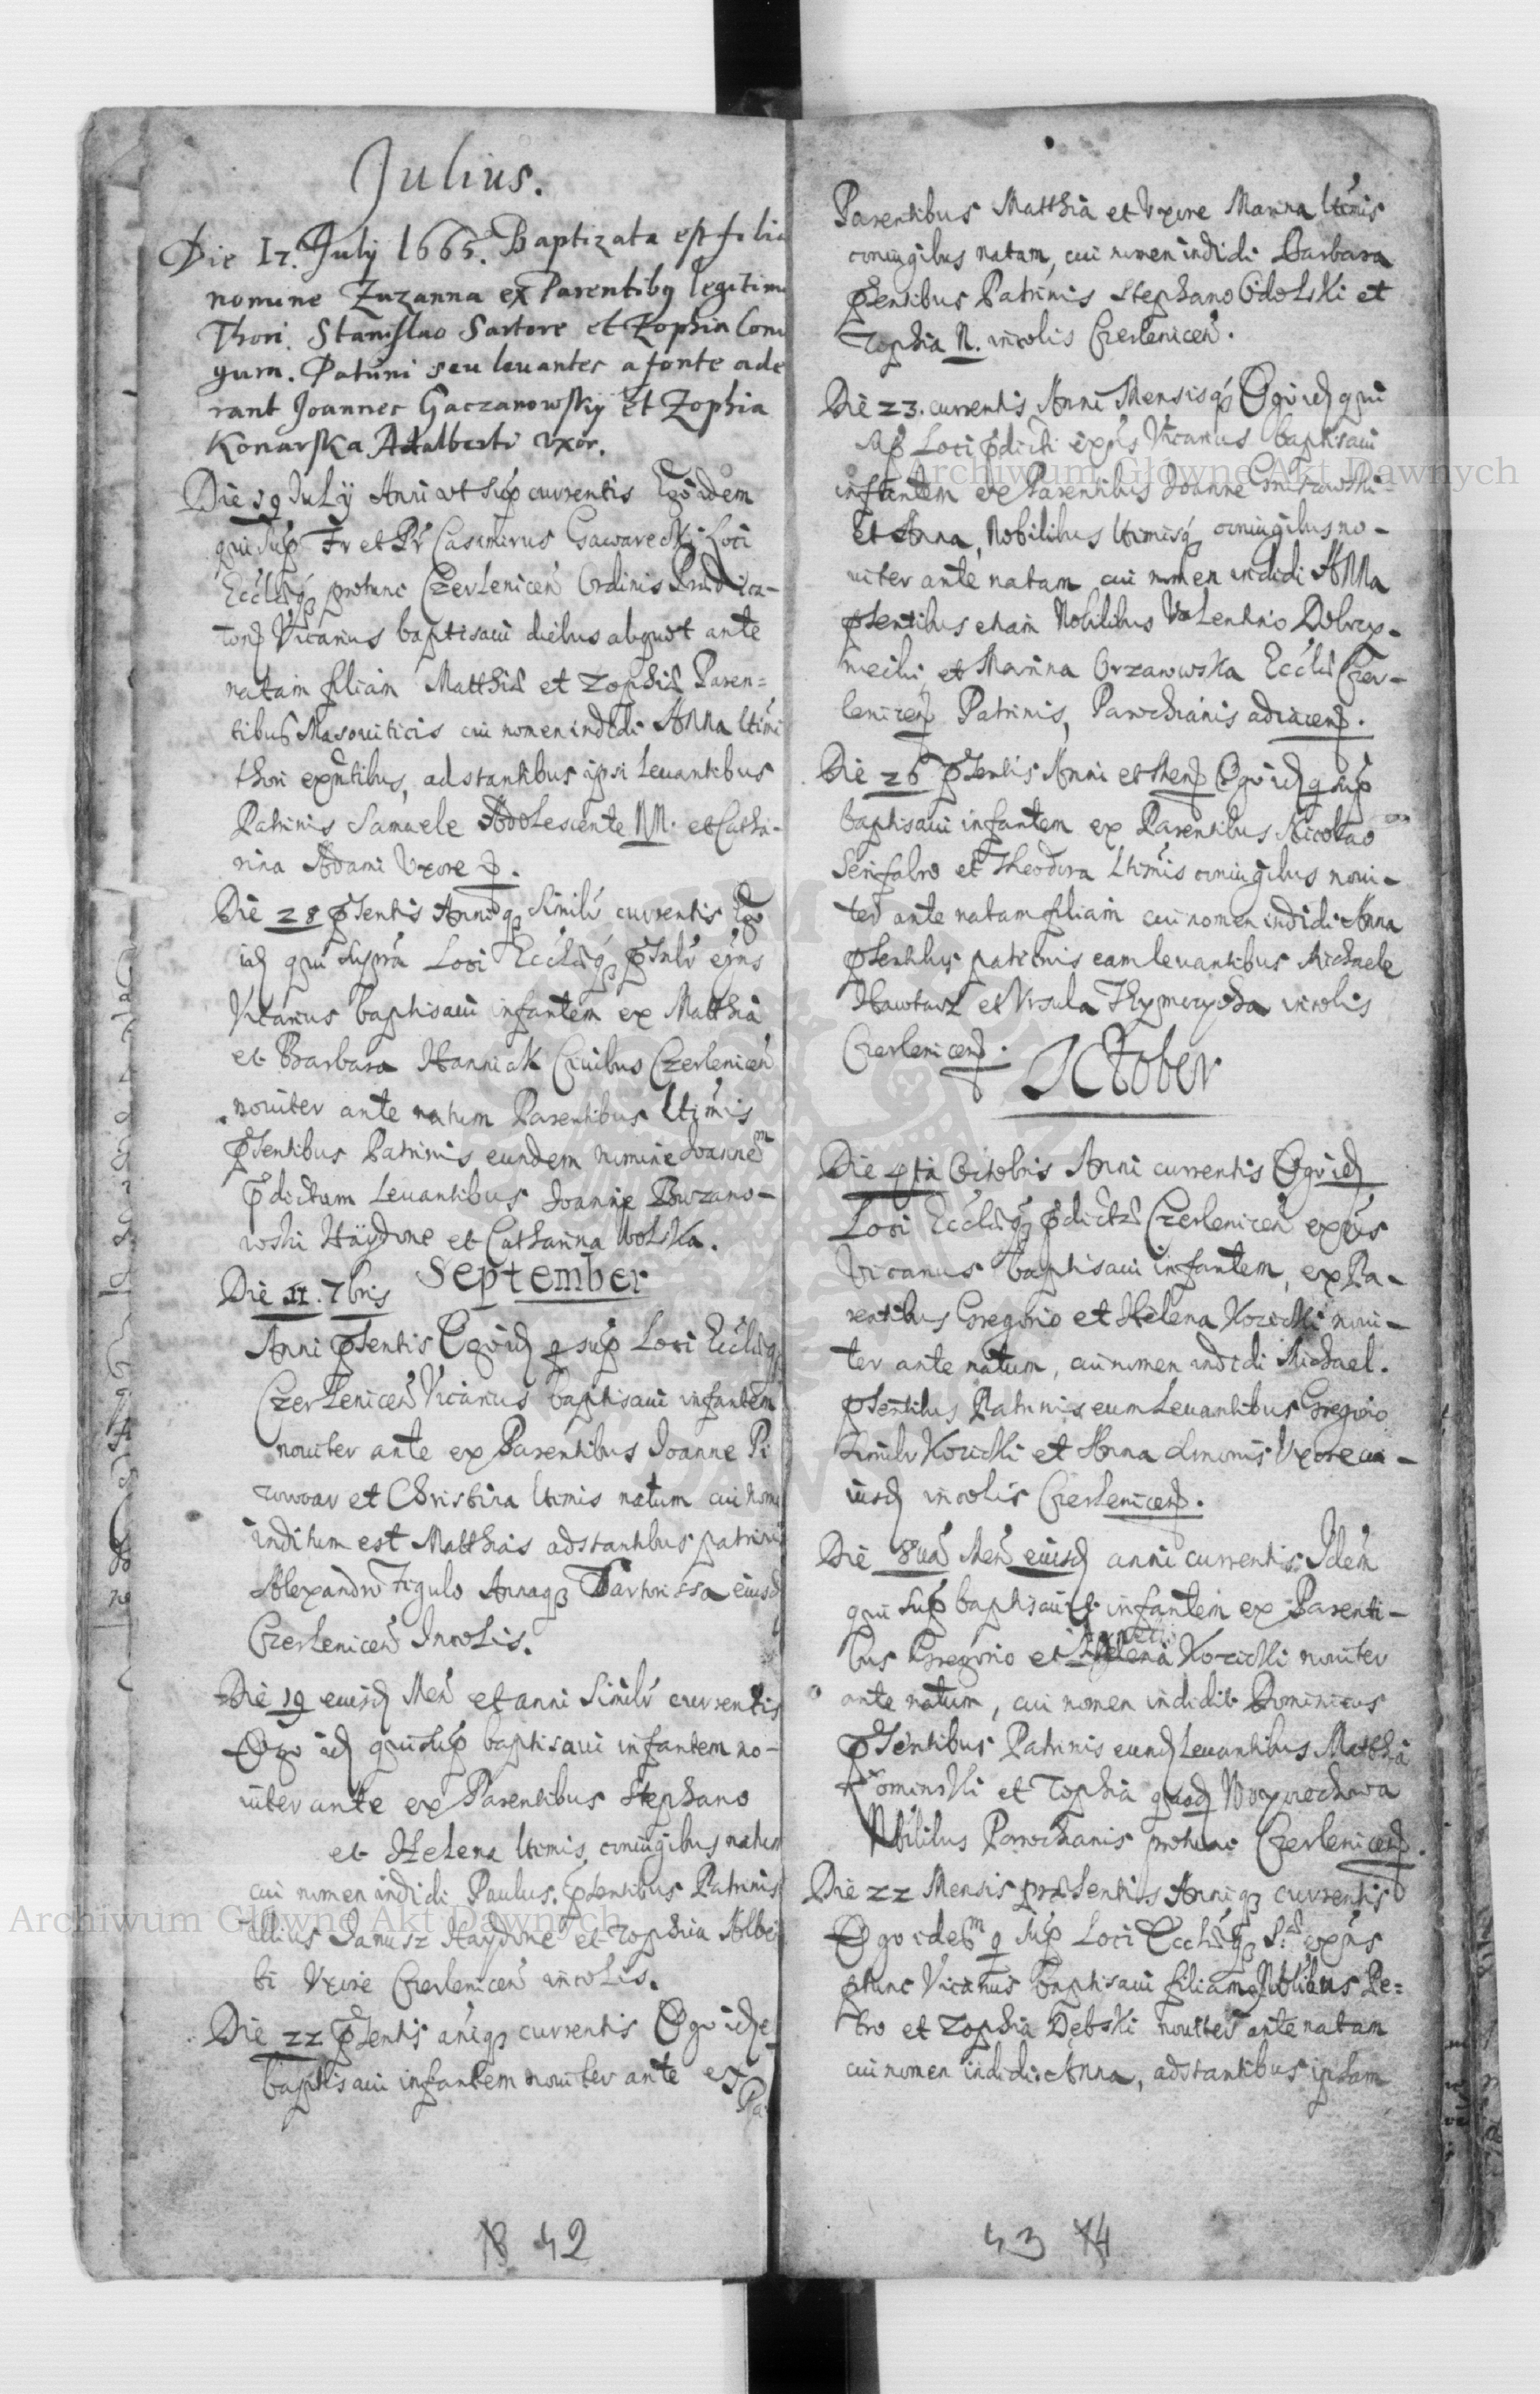 Julius.
Die 17. July 1665. Baptizata est filia
nomine Zuzanna ex Parentibq legitime
Thori. Stanislao Sartore et Zophia Coniu
gum. Patrini seu levantes a fonte ade
rant Joannes Gaczanowsky et Zophia
Konarska Adalberti vxor.
Die 19 Julÿ Anni vt sup currentis Ego idem
qui sup Fr et Pr Casimirus Gawarecki Loci
Ecclaeq protunc Czerlenicen Ordinis Prædica-
tor Vicarius baptisaui diebus aliquot ante
natam filiam Matthia et Zophia Paren=
tibus Masouiticis cui nomen indidi Anna ltimi
thori exntibus, adstantibus ipsi Leuantibus
Patrinis Samuele Adolescente NN. et Catha-
rina Adami Vxore
Die 28 psentis Anniq similr currentis Ego
id qui supra Loci Ecclaeq
Vicarius baptisaui infantem ex Matthia
et Barbara Hanniak Ciuibus Czerlenicen
nouiter ante natum Parentibus ltimis
psentibus Patrinis eundem nomine Joannem
pdictum Leuantibus Joanne Buzano-
wski Haÿdone et Catharina Wolska.
September
Die 11. 7bris
Anni psentis Ego id q sup Loci Ecclaeq
Czerlenicen Vicarius baptisaui infantem
nouiter ante ex Parentibus Joanne Pi
wowar et Christina ltimis natum cui nome
inditum est Matthias adstantibus patrini
Alexandro Figulo Annaq Sartorissa eiusd
Czerlenicen Incolis.
Die 19 eiusd Men et anni similr currentis
Ego id qui sup baptisaui infantem no-
uiter ante ex Parentibus Stephano
et Helena ltimis coniugibus natu
cui nomen indidi Paulus. psentibus Patrinis
illius Janusz Haydone et Zophia Albe
ti Vxore Czerlenicen incolis.
Die 22 psentis aniq currentis Ego id
baptisaui infantem nouiter ante ex
Pa
18 42
Parentibus Matthia et Vxore Marina ltimis
coniugibus natam, cui nomen indidi Barbara
psentibus Patrinis Stephano Cidolski et
Zophia N. incolis Czerlenicen.
Die 23. currentis Anni Mensisq Ego id qui
sup Loci pdicti exns Vicarius baptisaui
infantem ex Parentibus Joanne
Et Anna, Nobilibus ltimisq coniugibus no-
uiter ante natam cui nomen indidi Anna
psentibus etiam Nobilibus Valentino Dobrzy-
niecki et Marina Orzanowska Eccla Czer-
lenicen Patrinis, Parochianis adiacen.
Die 26 psentis Anni et Men Ego id q sup
baptisaui infantem ex Parentibus Nicolao
Serifabro et Theodora ltimis coniugibus noui-
ter ante natam filiam cui nomen indidi Anna
psentibus patrinis eam leuantibus Michaele
et Vrsula incolis
Czerlenicen.
October
Die 4ta Octobris Anni currentis Ego id
Loci Ecclaeq pdicta Czerlenicen exns
Vicarius baptisaui infantem, ex Pa-
rentibus Gregorio et Helena Kozicki noui-
ter ante natum, cui nomen indidi Michael.
psentibus Patrinis eum Leuantibus Gregorio
similr Kozicki et Anna Vxore
iusd incolis Czerlenicen.
Die 8ua Men eiusd anni currentis Idem
qui sup baptisauit infantem ex Parenti-
bus Gregorio et Helena Kozicki nouiter
ante natum, cui nomen indidit Dominicus
psentibus Patrinis eund Leuantibus Matthia
et Zophia
Nobilibus Parochianis protunc Czerlenicen.
Die 22 Mensis præsentis Anniq currentis
Ego idem q sup Loci Ecclaeq exns
ptunc Vicarius baptisaui filiam Nobilibus Pe=
tro et Zophia Dębski nouiter ante natam
cui nomen indidi Anna, adstantibus ipsam
43 14
Archiwum Główne Akt Dawnych
Archiwum Główne Akt Dawnych